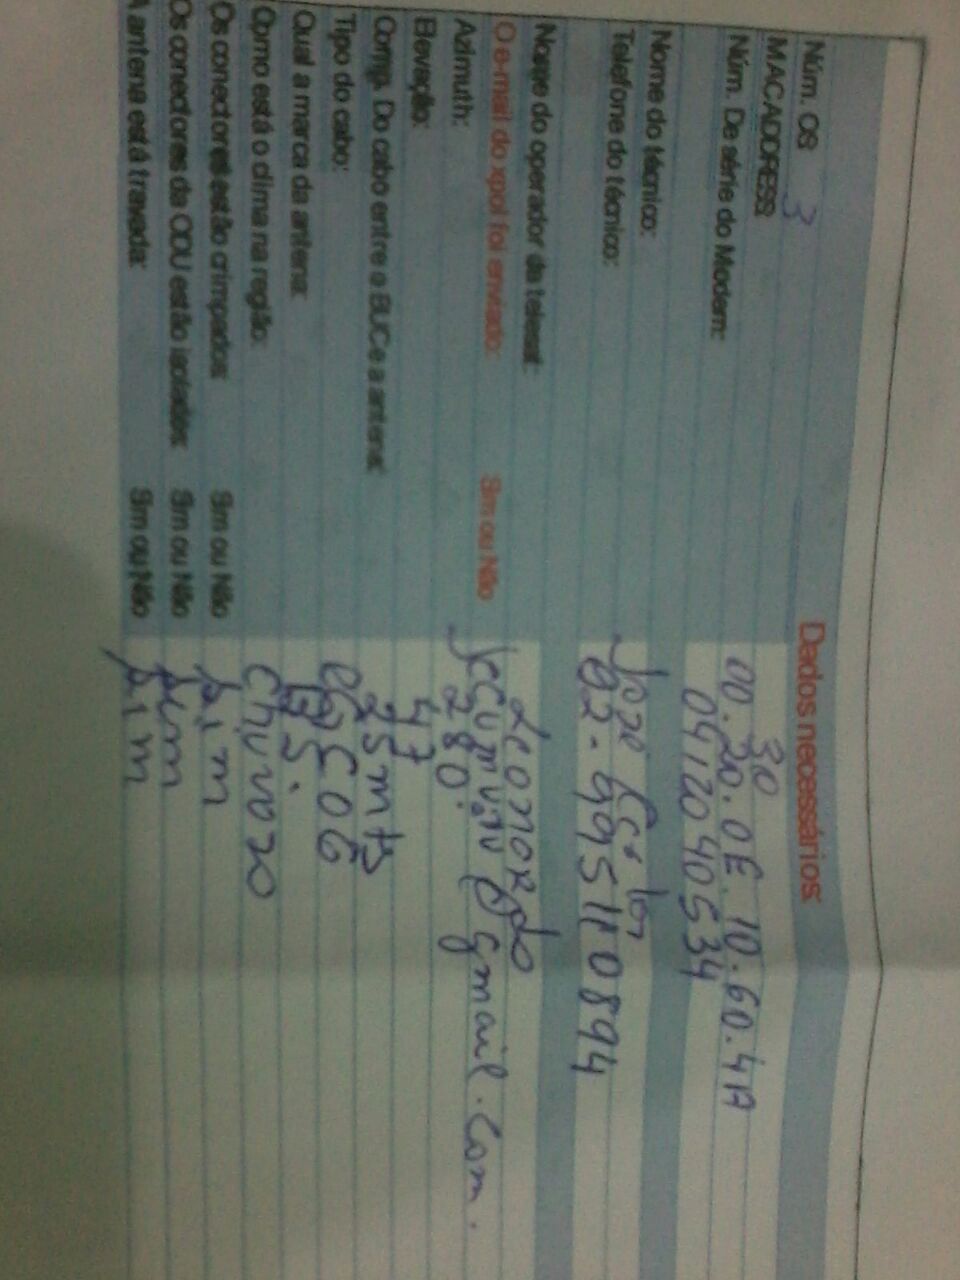 Dados necessários:
Núm. OS: 3
MACADDRESS:
30
Núm. De série do Modem: 00.20.0E.10.60.4A
0412040534
Nome do técnico:
Telefone do técnico: José
92-
Nome do operador da telesat: Leonardo
O e-mail do xpol foi enviado: Sim ou Não @gmail.com.
Azimuth: 280.
Elevação: 47
Comp. Do cabo entre o BUC e a antena: 25 mts
Tipo do cabo: RGC06
Qual a marca da antena:
Como está o clima na região: Chuvozo
Os conectores estão crimpados: Sim ou Não sim
Os conectores da ODU estão isolados: Sim ou Não sim
A antena está travada: Sim ou Não sim